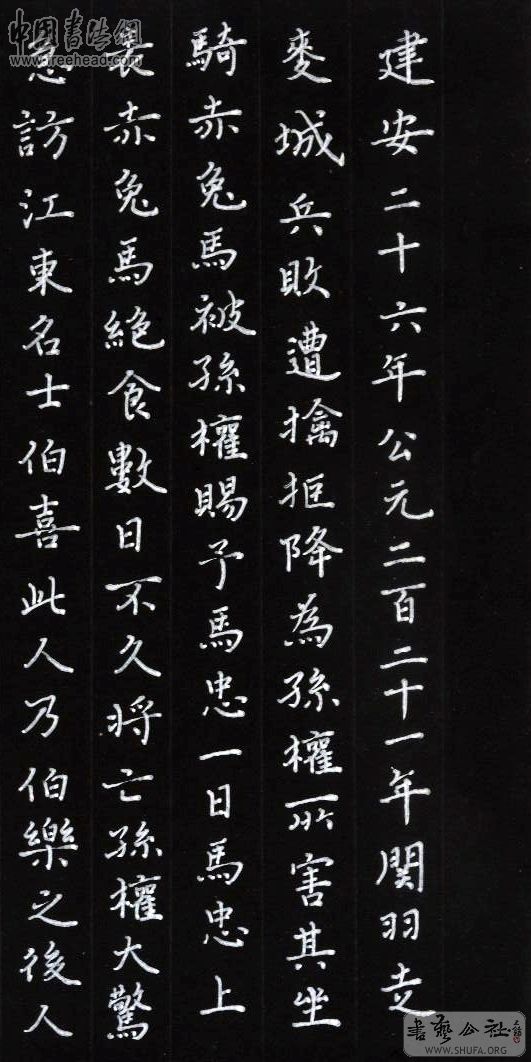 建安二十六年公元二百二十一年関羽走
麥城兵敗遭擒拒降為孫權所害其坐
騎赤兔馬被孫權賜予馬忠一日馬忠上
表赤兔馬絶食數日不久將亡孫權大驚
急訪江東名士伯喜此人乃伯樂之後人
中国書法網
www.freehead.com
書藝公社
WWW.SHUFA.ORG